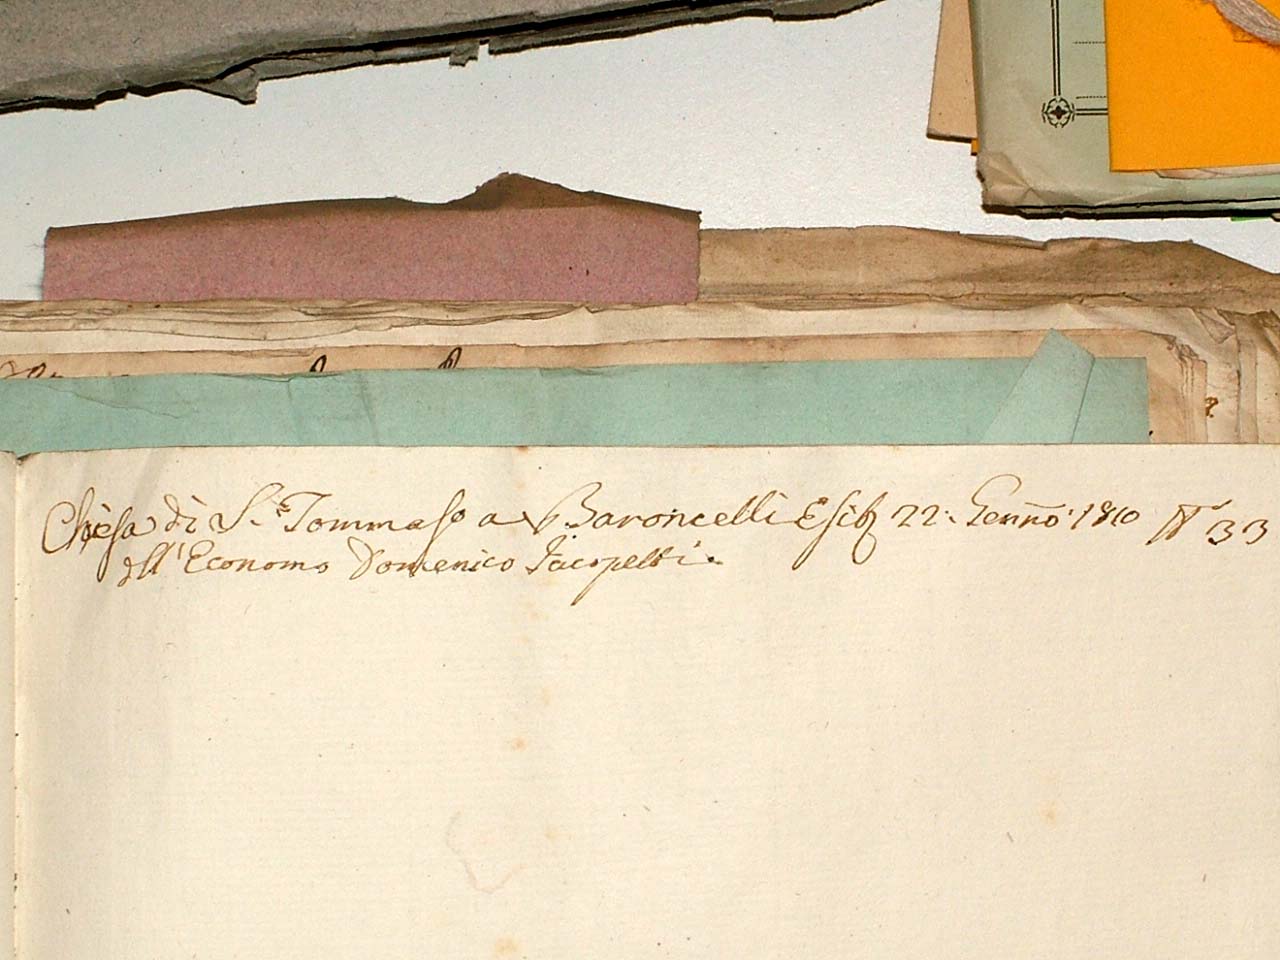 Chiesa di S. Tommaso a Baroncelli Esib 22. Genno: 1810 N° 33
dell'Economo Domenico Jacopetti.